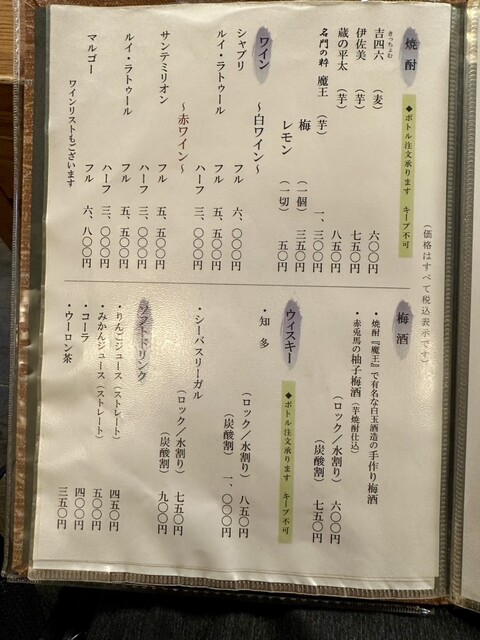 (価格はすべて税込表示です)
焼酎
◆ボトル注文承ります キープ不可
吉四六 (麦) 六〇〇円
きっちょむ
伊佐美 (芋) 七五〇円
蔵の平太 (芋) 八五〇円
名門の粋 魔王 (芋) 一、三〇〇円
梅 (一個) 三五〇円
レモン (一切) 五〇円
ワイン
〜白ワイン〜
シャブリ フル 六、〇〇〇円
ルイ・ラトゥール フル 五、五〇〇円
ハーフ 三、〇〇〇円
〜赤ワイン〜
サンテミリオン フル 五、五〇〇円
ハーフ 三、〇〇〇円
ルイ・ラトゥール フル 五、五〇〇円
ハーフ 三、〇〇〇円
マルゴー フル 六、八〇〇円
ワインリストもございます
梅酒
・焼酎『魔王』で有名な白玉酒造の手作り梅酒
・赤兎馬の柚子梅酒(芋焼酎仕込)
(ロック/水割り) 六〇〇円
(炭酸割) 七五〇円
ウィスキー
◆ボトル注文承ります キープ不可
・知多
(ロック/水割り) 八五〇円
(炭酸割) 一、〇〇〇円
・シーバスリーガル
(ロック/水割り) 七五〇円
(炭酸割) 九〇〇円
ソフトドリンク
・りんごジュース(ストレート) 四五〇円
・みかんジュース(ストレート) 五〇〇円
・コーラ 四〇〇円
・ウーロン茶 三五〇円